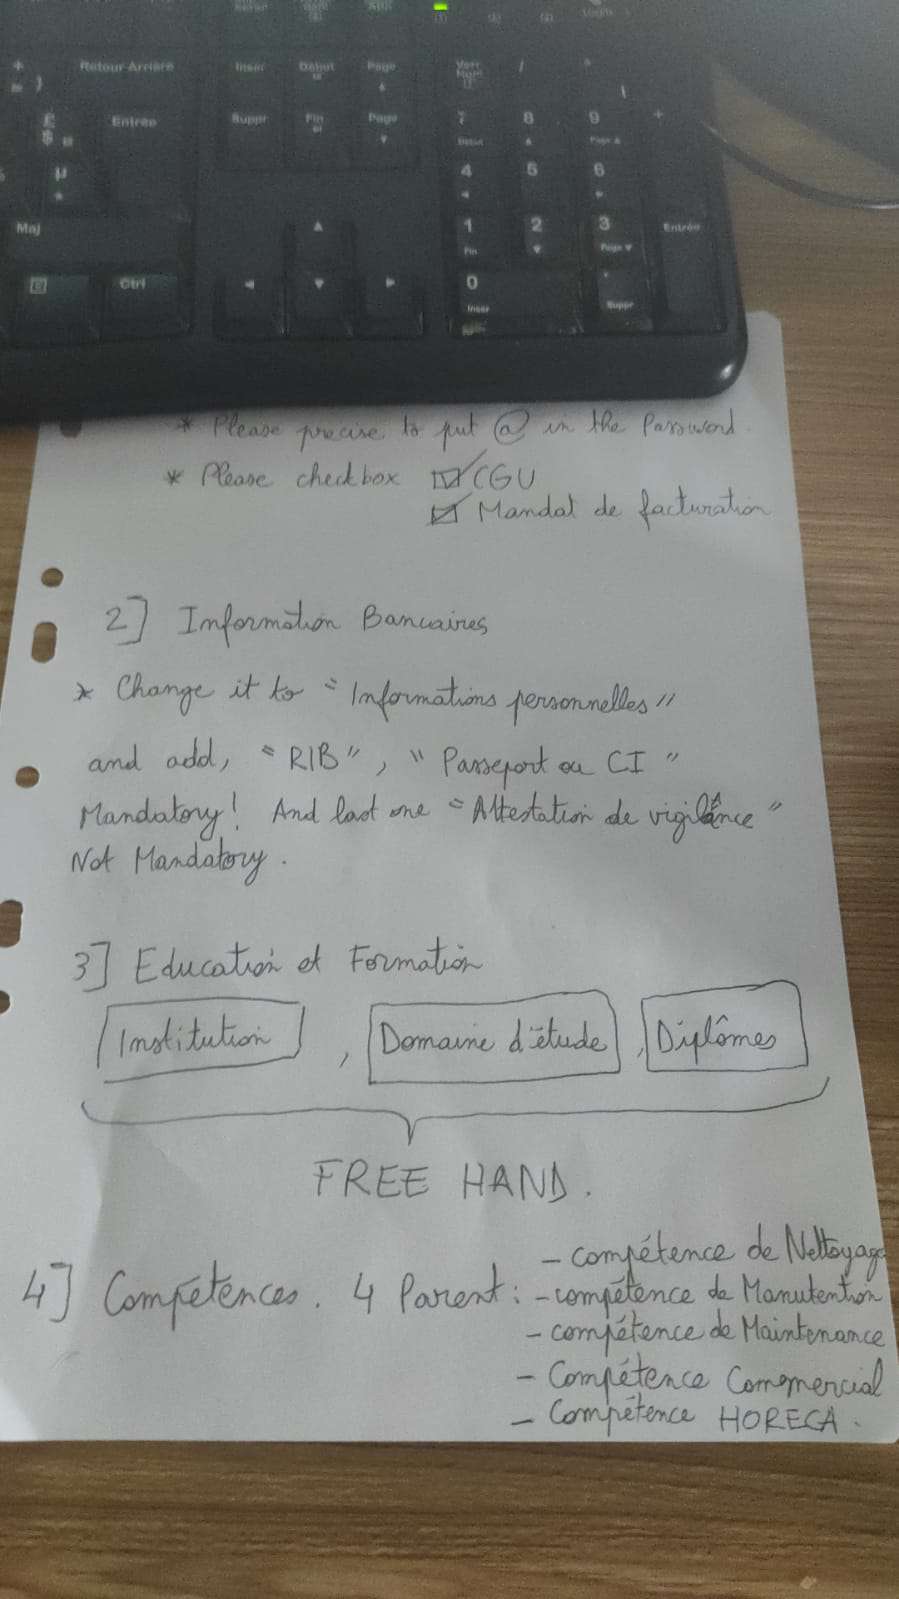 Retour Arrière
Inser
Début
Page
Entrée
Suppr
Fin
Page
7
8
9
+
4
5
6
Maj
1
2
3
Entrée
Fin
Page
Ctrl
0
Inser
Suppr
* Please precise to put @ in the Password.
* Please checkbox ☑ CGU
☑ Mandat de facturation
2] Information Bancaires
* Change it to "Informations personnelles"
and add, "RIB", "Passeport ou CI"
Mandatory! And last one "Attestation de vigilance"
Not Mandatory.
3] Education et Formation
Institution , Domaine d'étude , Diplômes
FREE HAND.
4] Compétences. 4 Parent: - compétence de Nettoyage
- compétence de Manutention
- compétence de Maintenance
- Compétence Commercial
- Compétence HORECA.